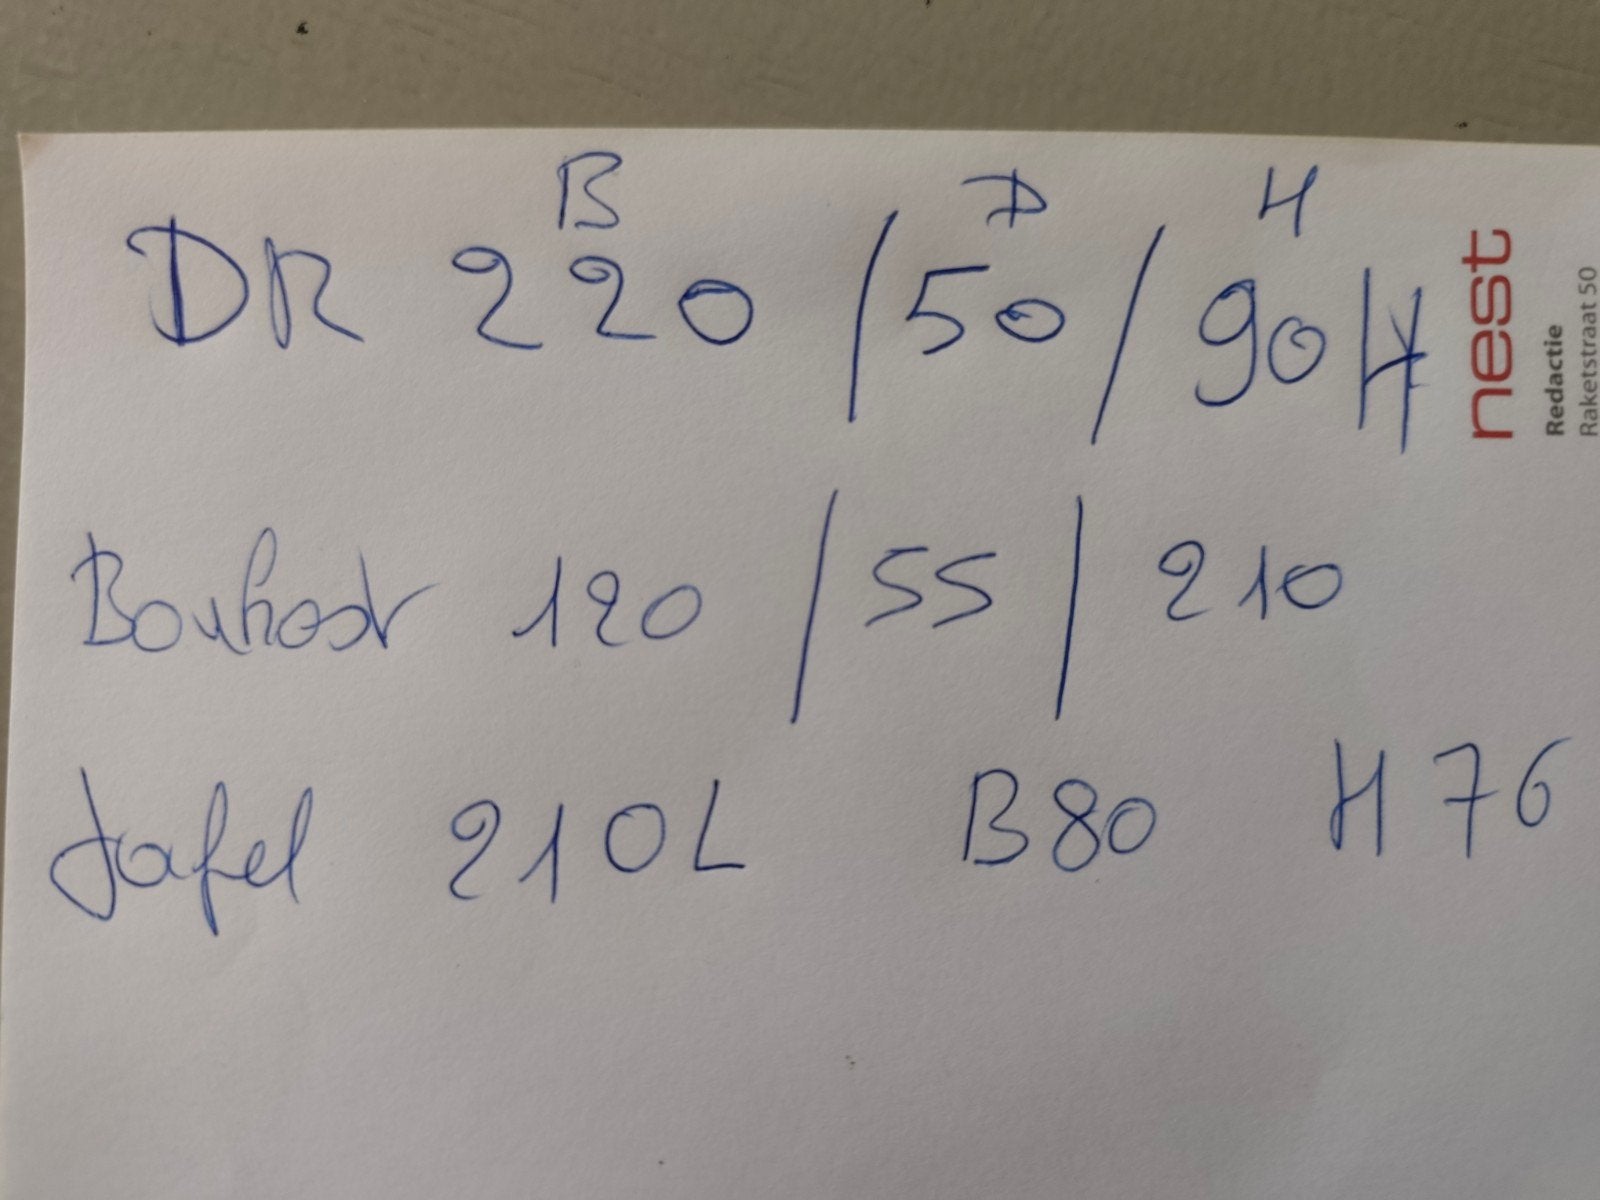 B D H
DR 220 / 50 / 90 H
Boukast 120 / 55 / 210
Tafel 210 L B 80 H 76
nest
Redactie
Raketstraat 50